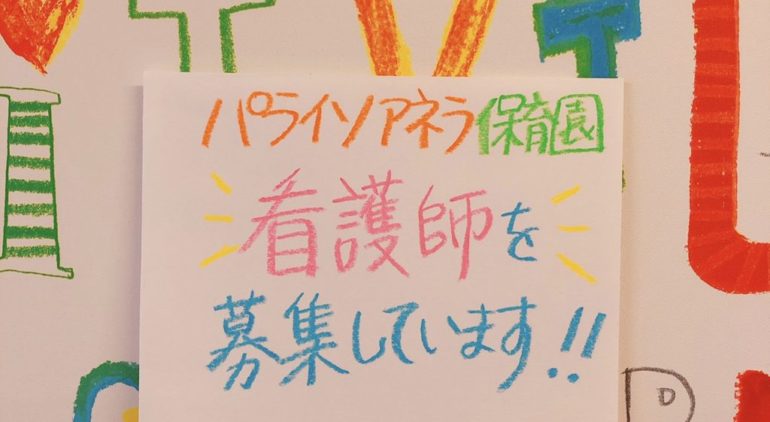 パライソアネラ保育園
看護師を
募集しています!!